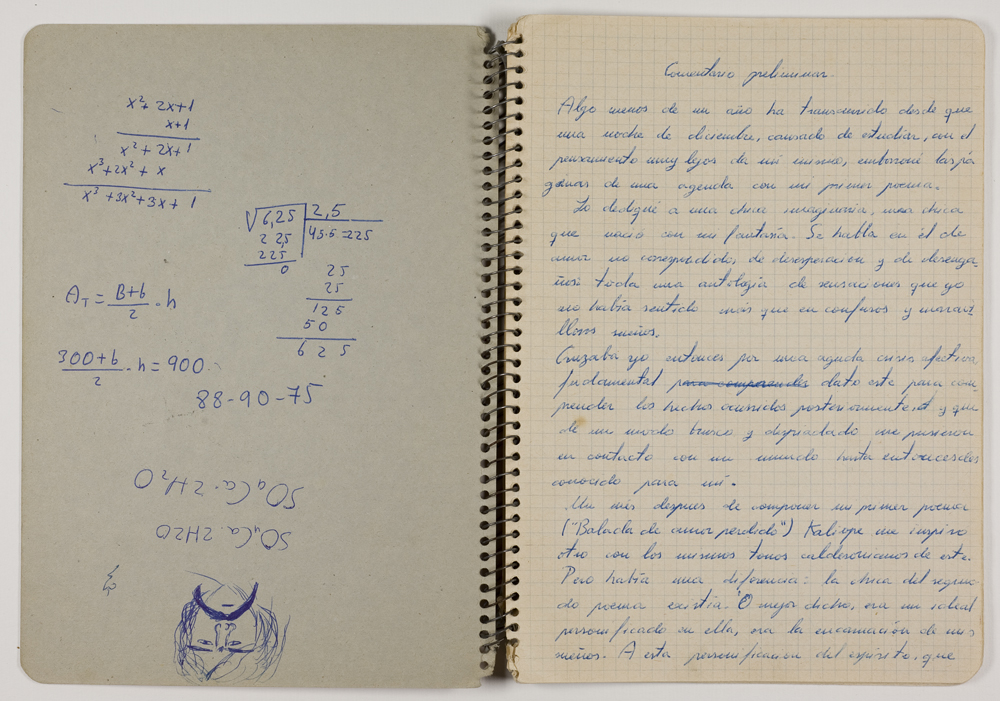 x²+ 2x+1
x+1
x²+ 2x+1
x³+2x²+ x
x³+3x²+3x+ 1
√6,25 2,5
2 25 45·5=225
225
0
25
25
125
50
625
A_T = B+b/2 · h
300+b/2 · h = 900
88-90-75
SO₄Ca·2H₂O
SO₄Ca·2H2O
Comentario preliminar.
Algo menos de un año ha transcurrido desde que
una noche de diciembre, cansado de estudiar, con el
pensamiento muy lejos de mi mismo, emborroné las pá
ginas de una agenda con mi primer poema.
Lo dediqué a una chica imaginaria, una chica
que nació con mi fantasía. Se habla en él de
amor no correspondido, de desesperación y de desenga-
ños: toda una antología de sensaciones que yo
no había sentido más que en confusos y maravi-
llosos sueños.
Cruzaba yo entonces por una aguda crisis afectiva,
fundamental para comprender dato este para com-
prender los hechos ocurridos posteriormente y que
de un modo brusco y despiadado me pusieron
en contacto con un mundo hasta entonces des
conocido para mí.
Un mes después de componer mi primer poema
("Balada de amor perdido") Kaliope me inspiró
otro con los mismos tonos calderonianos de este.
Pero había una diferencia: la chica del segun-
do poema existía. O mejor dicho, era un ideal
personificado en ella, era la encarnación de mis
sueños. A esta personificación del espíritu, que